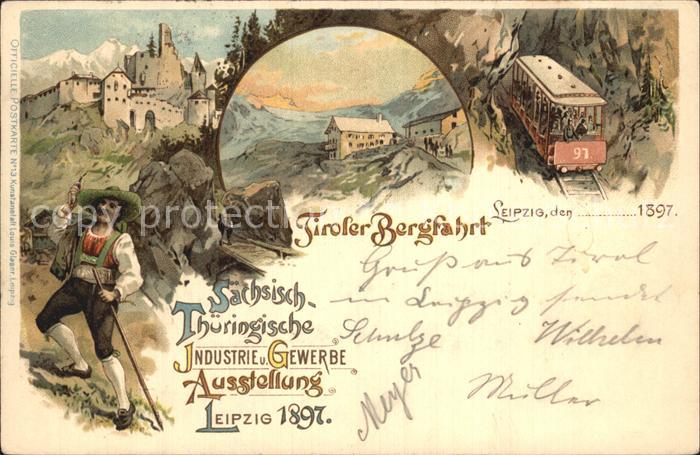 OFFICIELLE POSTKARTE No 13. Kunstanstalt Louis Glaser, Leipzig
91.
Tiroler Bergfahrt
LEIPZIG, den ............... 1897.
Gruß aus Tirol
in Leipzig sendet
Schulze Wilhelm
Müller
Meyer
Sächsisch-
Thüringische
INDUSTRIE u. GEWERBE
Ausstellung
LEIPZIG 1897.
copy protected
copy protected